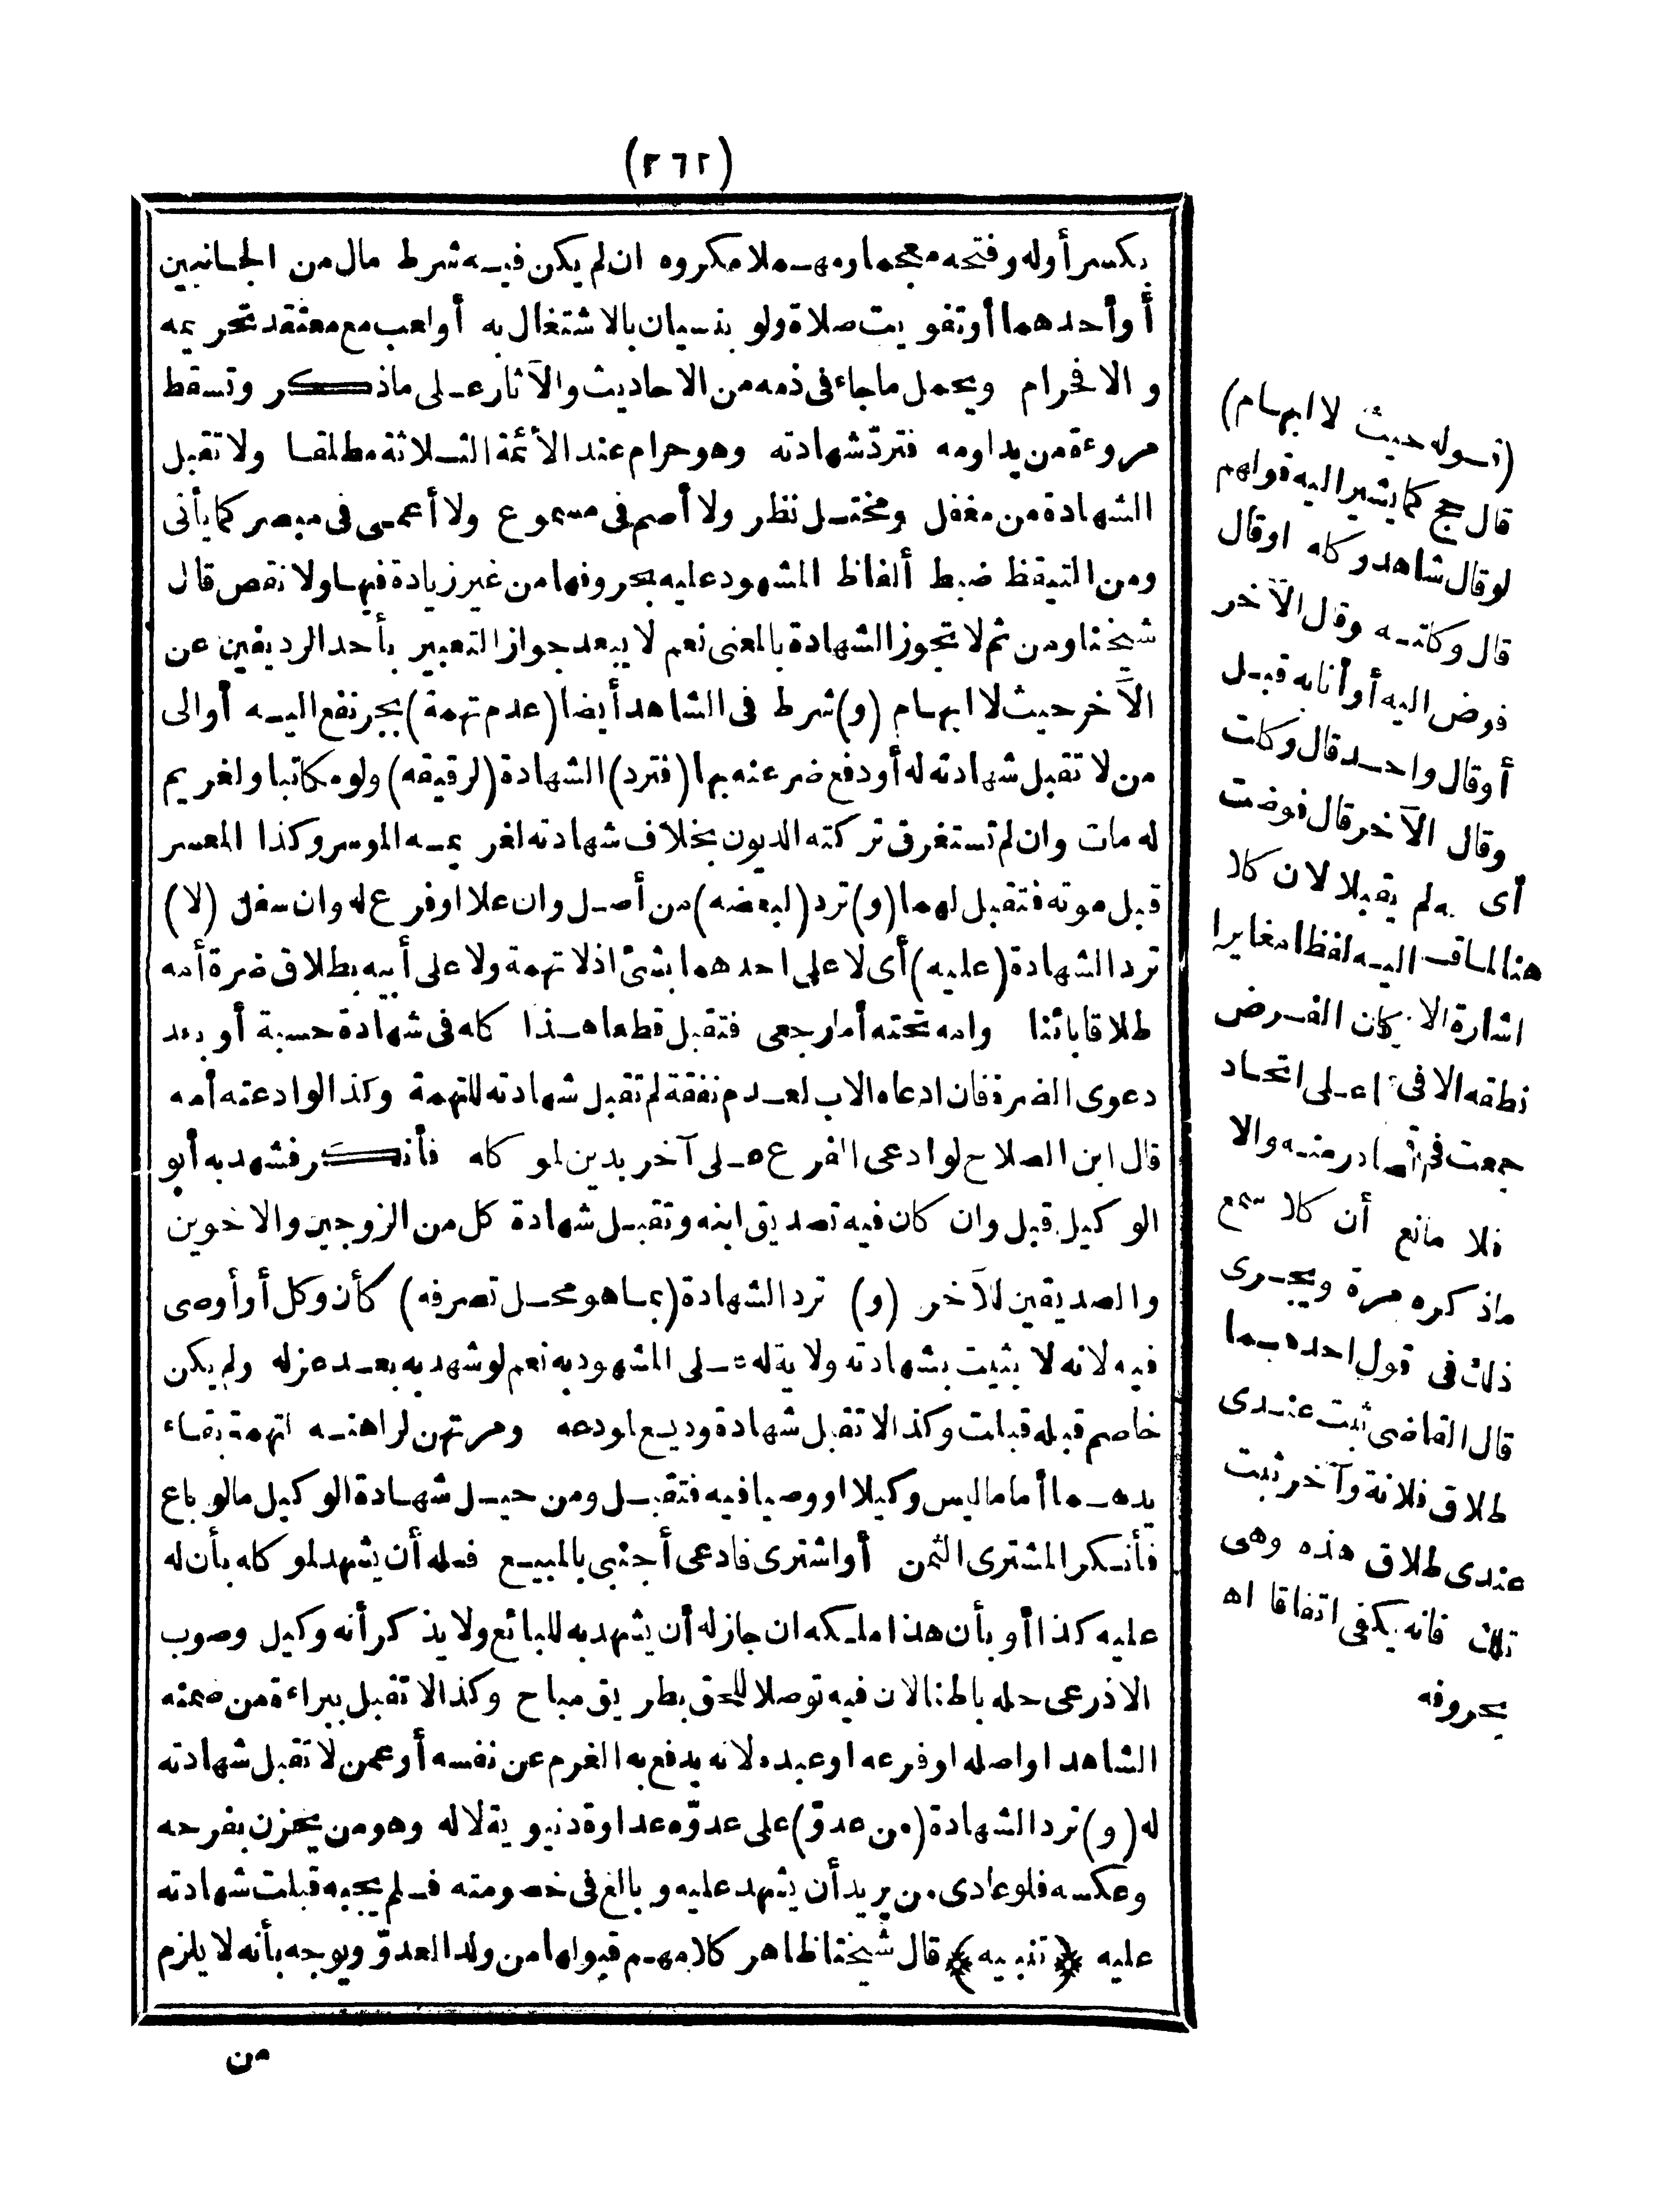 (٢٦٢)
بكسر أوله وفتحه معجما ومهملا مكروه ان لم يكن فيه شرط مال من الجانبين
أو أحدهما أو تفويت صلاة ولو بنسيان بالاشتغال به أو لعب مع معتقد تحريمه
والا فحرام ويحمل ما جاء فى ذمه من الاحاديث والآثار على ما ذكر وتسقط
مروءة من يداومه فتردّ شهادته وهو حرام عند الأئمة الثلاثة مطلقا ولا تقبل
الشهادة من مغفل ومختل نظر ولا أصم فى مسموع ولا أعمى فى مبصر كما يأتى
ومن التيقظ ضبط ألفاظ المشهود عليه بحروفها من غير زيادة فيها ولا نقص قال
شيخنا ومن ثم لا تجوز الشهادة بالمعنى نعم لا يبعد جواز التعبير بأحد الرديفين عن
الآخر حيث لا ابهام (و) شرط فى الشاهد أيضا (عدم تهمة) بجر نفع اليه أو الى
من لا تقبل شهادته له أو دفع ضر عنه بها (فترد) الشهادة (لرقيقه) ولو مكاتبا ولغريم
له مات وان لم تستغرق تركته الديون بخلاف شهادته لغريمه الموسر وكذا المعسر
قبل موته فتقبل لهما (و) ترد (لبعضه) من أصل وان علا او فرع له وان سفل (لا)
ترد الشهادة (عليه) أى لا على احدهما بشئ اذ لا تهمة ولا على أبيه بطلاق ضرة أمه
طلاقا بائنا وامه تحته أما رجعى فتقبل قطعا هذا كله فى شهادة حسبة أو بعد
دعوى الضرة فان ادعاه الاب لعدم نفقة لم تقبل شهادته للتهمة وكذا لو ادعته أمه
قال ابن الصلاح لو ادعى الفرع على آخر بدين لموكله فأنكر فشهد به أبو
الوكيل قبل وان كان فيه تصديق ابنه وتقبل شهادة كل من الزوجين والاخوين
والصديقين للآخر (و) ترد الشهادة (بما هو محل تصرفه) كأن وكل أو أوصى
فيه لانه لا يثبت بشهادته ولاية له على المشهود به نعم لو شهد به بعد عزله ولم يكن
خاصم قبله قبلت وكذا لا تقبل شهادة وديع لمودعه ومرتهن لراهنه لتهمة بقاء
يدهما أما ما ليس وكيلا او وصيا فيه فتقبل ومن حيل شهادة الوكيل ما لو باع
فأنكر المشترى الثمن أو اشترى فادعى أجنبى بالمبيع فله أن يشهد لموكله بأن له
عليه كذا أو بأن هذا ملكه ان جاز له أن يشهد به للبائع ولا يذكر أنه وكيل وصوب
الاذرعى حله باطنا لان فيه توصلا للحق بطريق مباح وكذا لا تقبل ببراءة من ضمنه
الشاهد او اصله او فرعه او عبده لانه يدفع به الغرم عن نفسه أو عمن لا تقبل شهادته
له (و) ترد الشهادة (من عدوّ) على عدوّه عداوة دنيوية لا له وهو من يحزن بفرحه
وعكسه فلو عادى من يريد أن يشهد عليه وبالغ فى خصومته فلم يجبه قبلت شهادته
عليه ﴿تنبيه﴾ قال شيخنا ظاهر كلامهم قبولها من ولد العدوّ ويوجه بأنه لا يلزم
من
(قوله حيث لا ابهام)
قال حج كما يشير اليه قولهم
لو قال شاهد وكله او قال
قال وكلته وقال الآخر
فوض اليه أو أنابه قبل
أو قال واحد قال وكلت
وقال الآخر قال فوضت
أى به لم يقبلا لان كلا
هنا لما أسند اليه لفظا مغايرا
اشارة الا كان الفرض
نطقه الا فى اعلى اتحاد
جمعت فى صادر منه والا
فلا مانع أن كلا سمع
ماذكره مرة ويجرى
ذلك فى قول احدهما
قال القاضى ثبت عندى
طلاق فلانة وآخر ثبت
عندى طلاق هذه وهى
تلك فانه يكفى اتفاقا اه
بحروفه